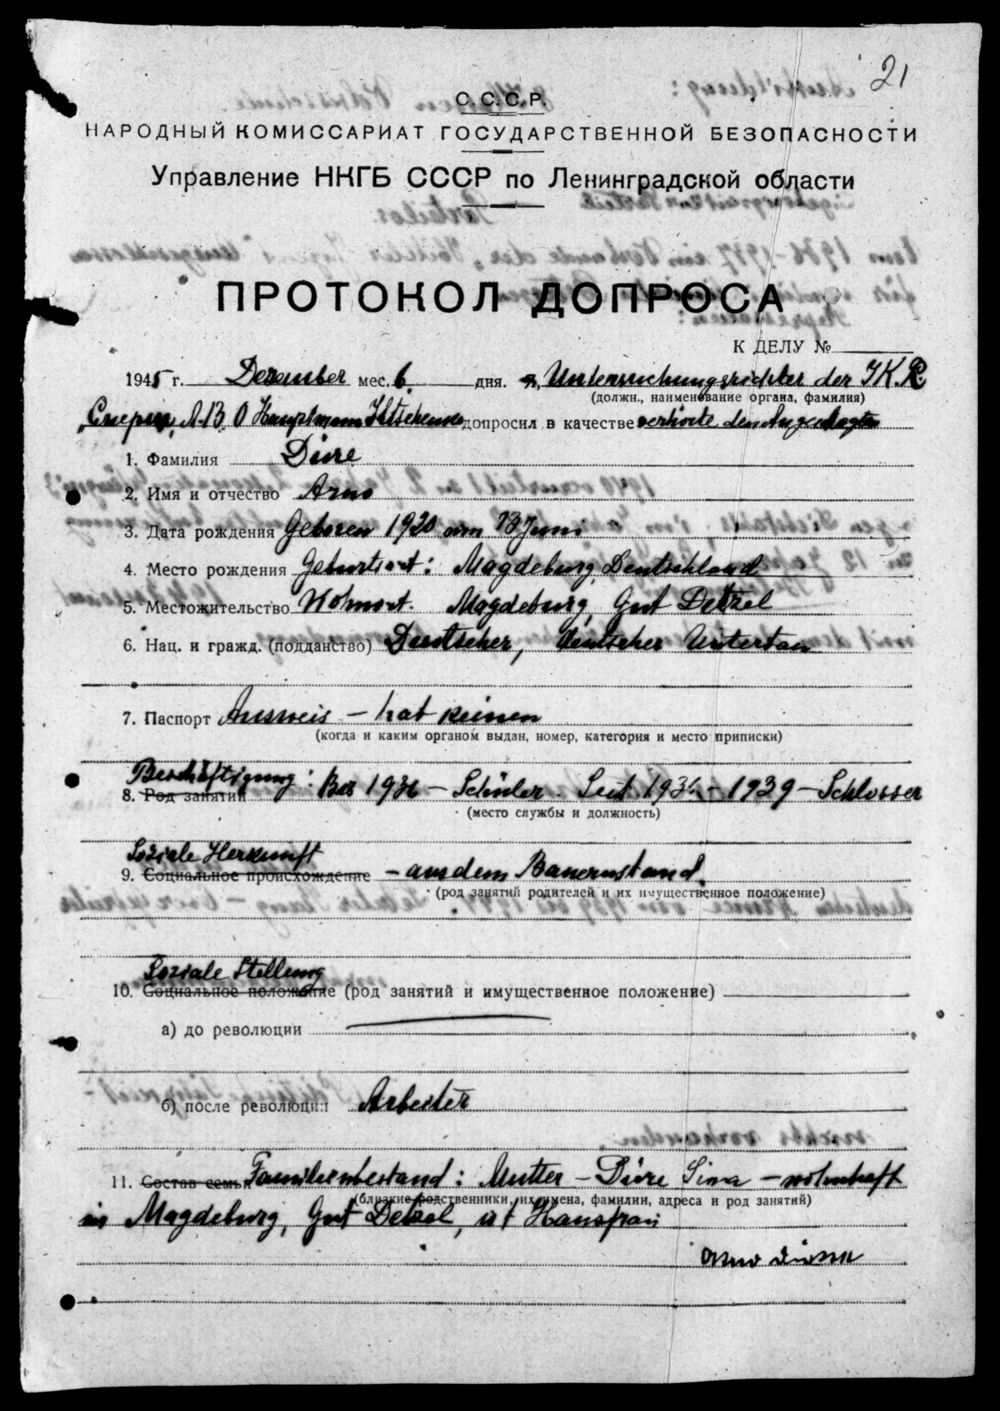 21
С.С.С.Р.
НАРОДНЫЙ КОМИССАРИАТ ГОСУДАРСТВЕННОЙ БЕЗОПАСНОСТИ
Управление НКГБ СССР по Ленинградской области
ПРОТОКОЛ ДОПРОСА
К ДЕЛУ №
1945 г. Dezember мес. 6. дня. Я, Untersuchungsrichter der
(должн., наименование органа, фамилия)
"Смерш" Hauptmann допросил в качестве verhörte den Angeklagten
1. Фамилия Düre
2. Имя и отчество Arno
3. Дата рождения Geboren 1920 am 13 Juni
4. Место рождения Geburtsort: Magdeburg, Deutschland
5. Местожительство Wohnort. Magdeburg, Gut Detzel
6. Нац. и гражд. (подданство) Deutscher, deutscher Untertan
7. Паспорт Ausweis – hat keinen
(когда и каким органом выдан, номер, категория и место приписки)
Beschäftigung:
8. Род занятий Bis 1936 – Schüler. Seit 1936 – 1939 – Schlosser
(место службы и должность)
Soziale Herkunft
9. Социальное происхождение – aus dem Bauernstand.
(род занятий родителей и их имущественное положение)
Soziale Stellung
10. Социальное положение (род занятий и имущественное положение)
а) до революции
б) после революции Arbeiter
11. Состав семьи Familienbestand: Mutter – Düre – wohnhaft
(близкие родственники, их имена, фамилии, адреса и род занятий)
in Magdeburg, Gut Detzel, ist Hausfrau